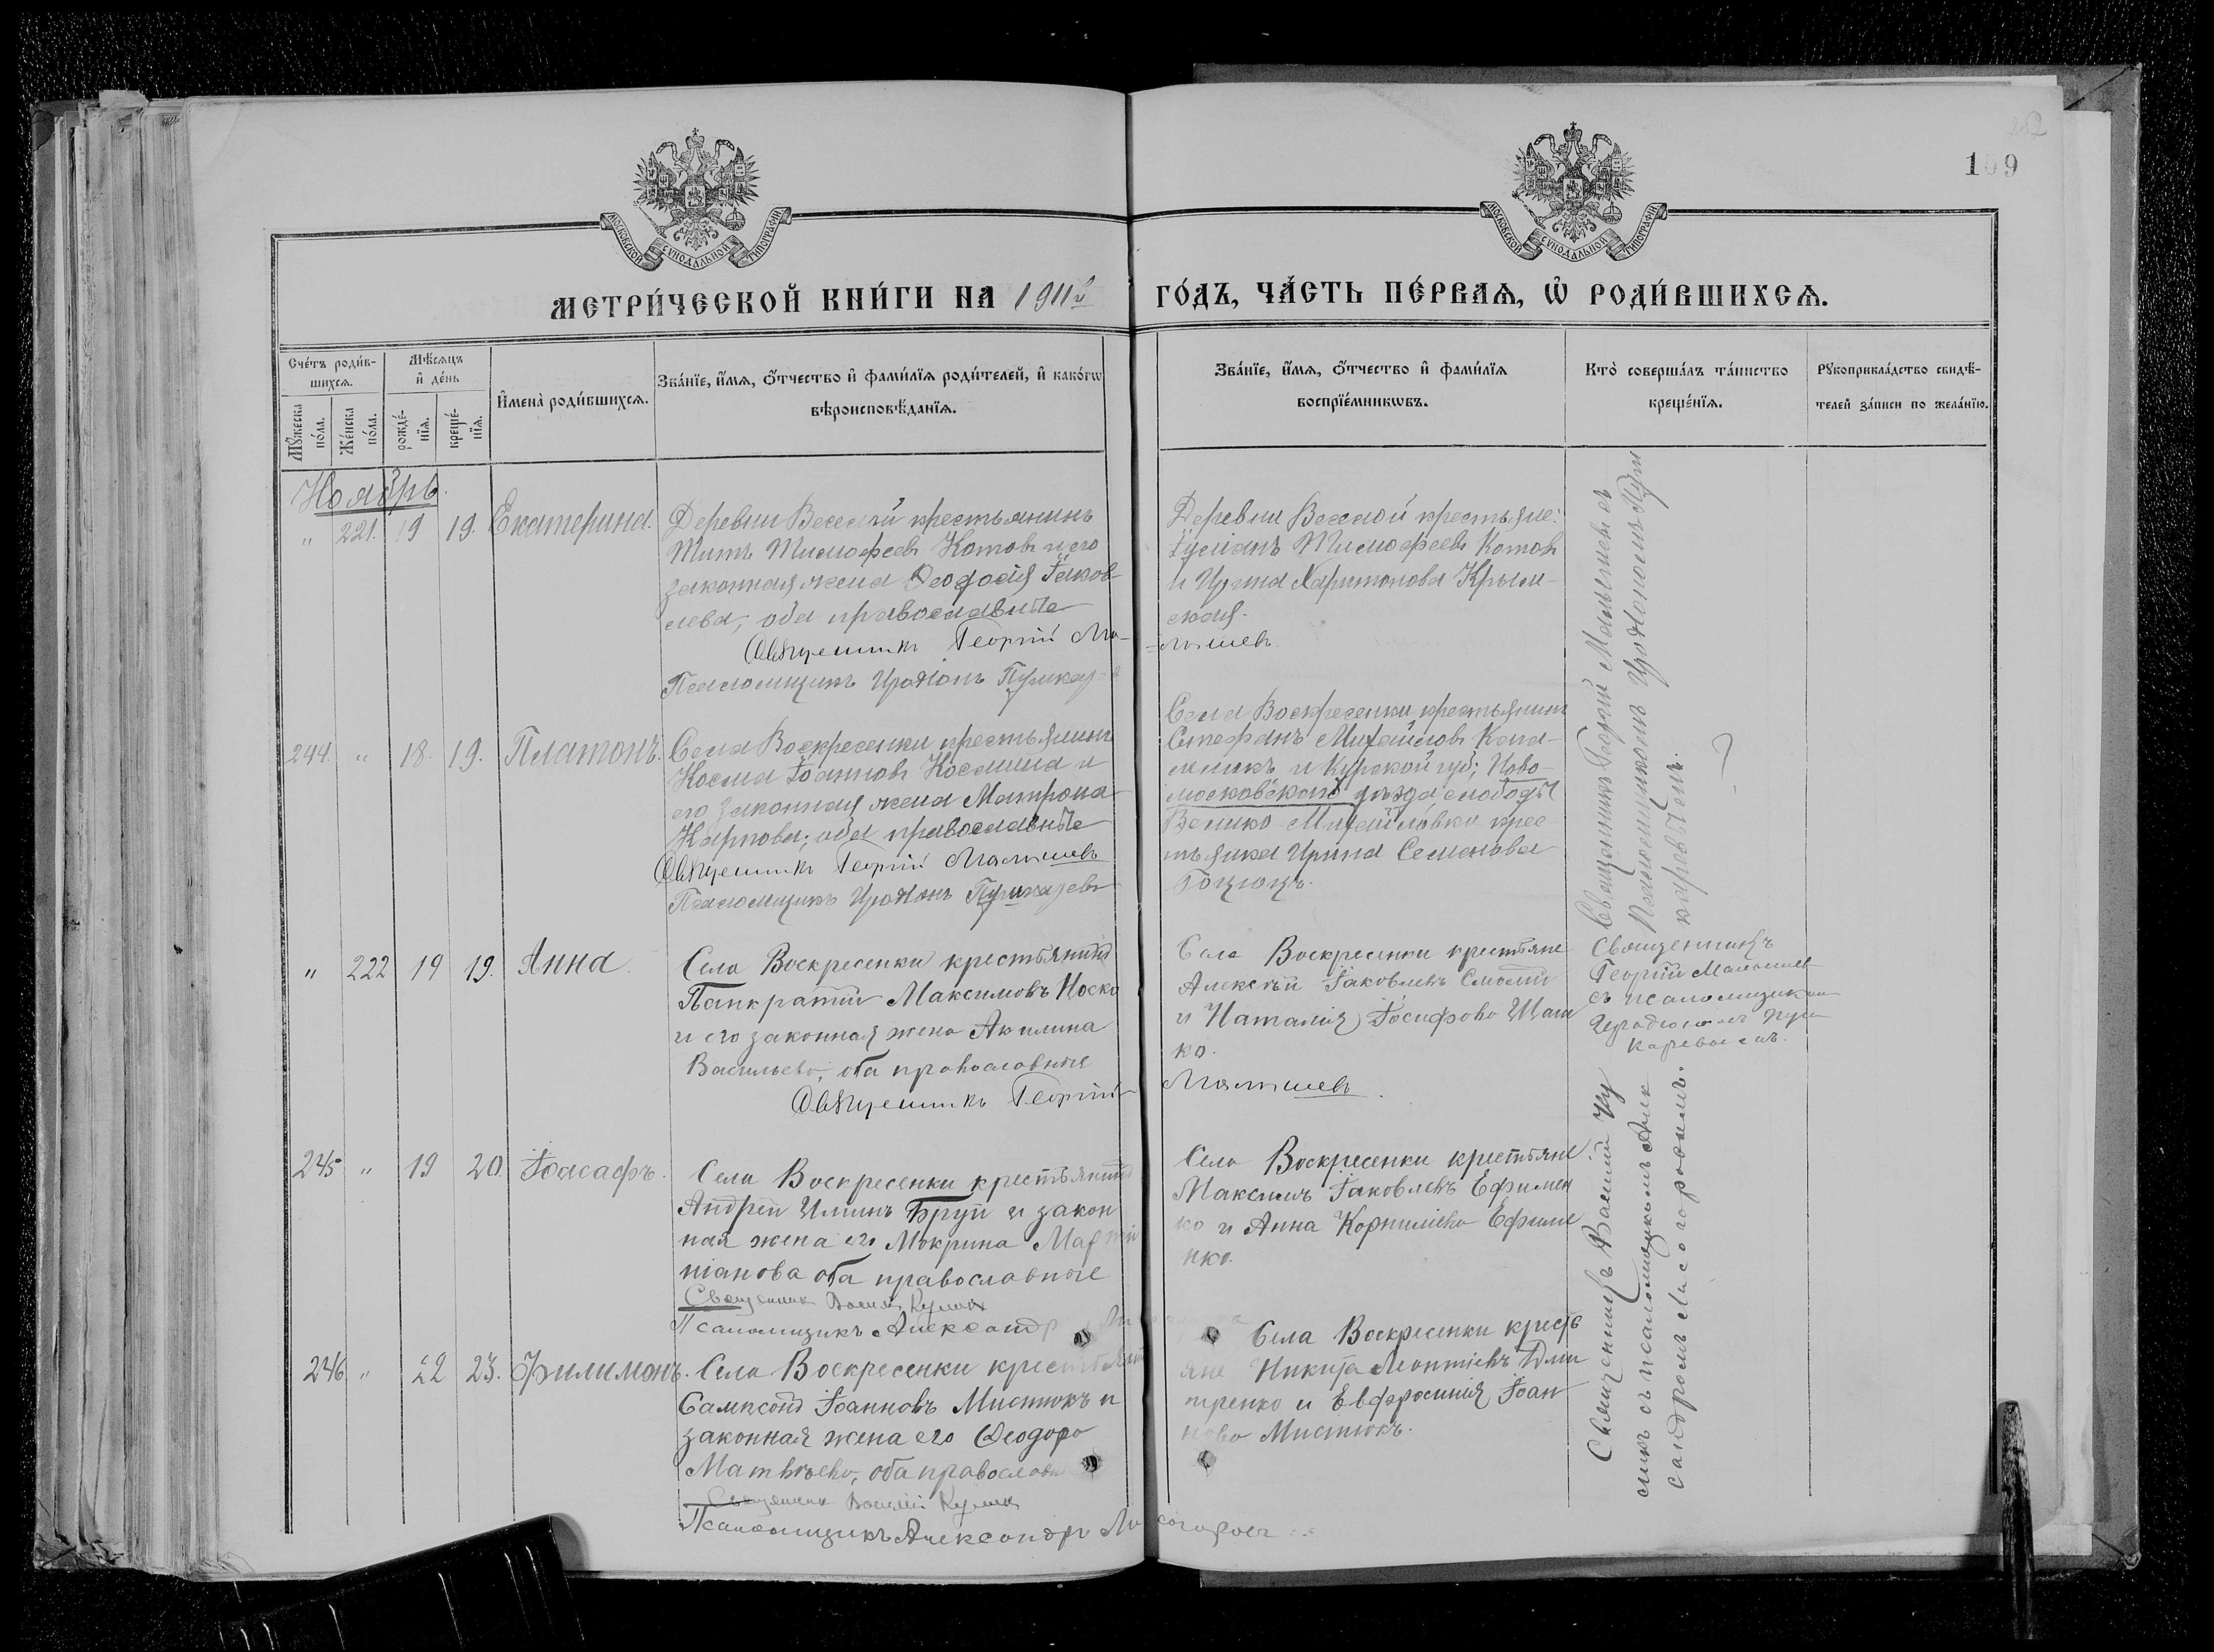 199
МОСКОВСКОЙ СУНОДАЛЬНОЙ ТИПОГРАФІИ
МОСКОВСКОЙ СУНОДАЛЬНОЙ ТИПОГРАФІИ
МЕТРИ́ЧЕСКОЙ КНИ́ГИ НА 1911й ГО́ДЪ, ЧА́СТЬ ПЕ́РВАѦ, Ѡ҆ РОДИ́ВШИХСѦ.
Сче́тъ роди́в-
шихсѧ.
Мꙋ́жеска по́ла.
Же́нска по́ла.
Мѣ́сѧцъ
и҆ де́нь
рожде́-
нїѧ.
креще́-
нїѧ.
И҆мена̀ роди́вшихсѧ.
Зва́нїе, и҆́мѧ, ѻ҆́тчество и҆ фами́лїѧ роди́телей, и҆ како́гѡ
вѣроисповѣ́данїѧ.
Зва́нїе, и҆́мѧ, ѻ҆́тчество и҆ фами́лїѧ
воспрїе́мникѡвъ.
Кто̀ соверша́лъ та́инство
креще́нїѧ.
Рꙋкоприкла́дство свидѣ́-
телей за́писи по жела́нїю.
Ноябрь.
" 221. 19 19. Екатерина.
Деревни Веселой крестьянинъ
Титъ Тимофеевъ Котовъ и его
законная жена Ѳеодосія Іаков-
лева, оба православные
Священникъ Георгій Ма-
Псаломщикъ Иродіонъ Пушкарев
Деревни Веселой крестьяне:
Тимофеевъ Котовъ
и Ирина Харитонова Крым-
ская.
=лышевъ.
Священникъ Георгій Малышевъ съ
Псаломщикомъ Иродіономъ Пуш
каревымъ.
?
244. " 18. 19. Платонъ.
Села Воскресенки крестьянинъ
Косма Іоанновъ Косьмина и
его законная жена Матрона
Карпова; оба православные
Священникъ Георгій Малышевъ
Псаломщикъ Иродіонъ Пушкаревъ
Села Воскресенки крестьянинъ
Стефанъ Михайловъ
и Курской губ; Ново-
московского уѣзда слободы
Велико-Михайловки крес
тьянка Ирина Семенова
" 222 19 19. Анна.
Села Воскресенки крестьянинъ
Панкратій Максимовъ Носко
и его законная жена Акилина
Васильева, оба православные
Священникъ Георгій
Села Воскресенки крестьяне
Алексѣй Іаковлевъ
и Наталія Іосифова Шаш
ко.
Малышевъ.
Священникъ
Георгій Малышев
съ псаломщиком
Иродіономъ Пуш
каревымъ.
245 " 19 20. Іоасафъ.
Села Воскресенки крестьянинъ
Андрей Ильинъ Бруй и закон
ная жена его Мокрина Марти
ніанова оба православные
Священник Василій Кулик
Псаломщикъ Александр
Села Воскресенки крестьяне:
Максимъ Іаковлевъ Ефимен
ко и Анна Корниліева Ефиме
нко.
Священникъ Василій Ку
ликъ съ псаломщикомъ Алек
сандромъ Лисогоровымъ.
246 " 22 23. Филимонъ.
Села Воскресенки крестьянин
Сампсонъ Іоанновъ Мистюкъ и
законная жена его Ѳеодора
Матвѣева, оба православн
Священник Василій Кулик
Псаломщикъ Александръ Лисогоровъ
Села Воскресенки кресть
яне Никита Леонтіевъ Дми
тренко и Евфросинія Іоан
нова Мистюкъ.